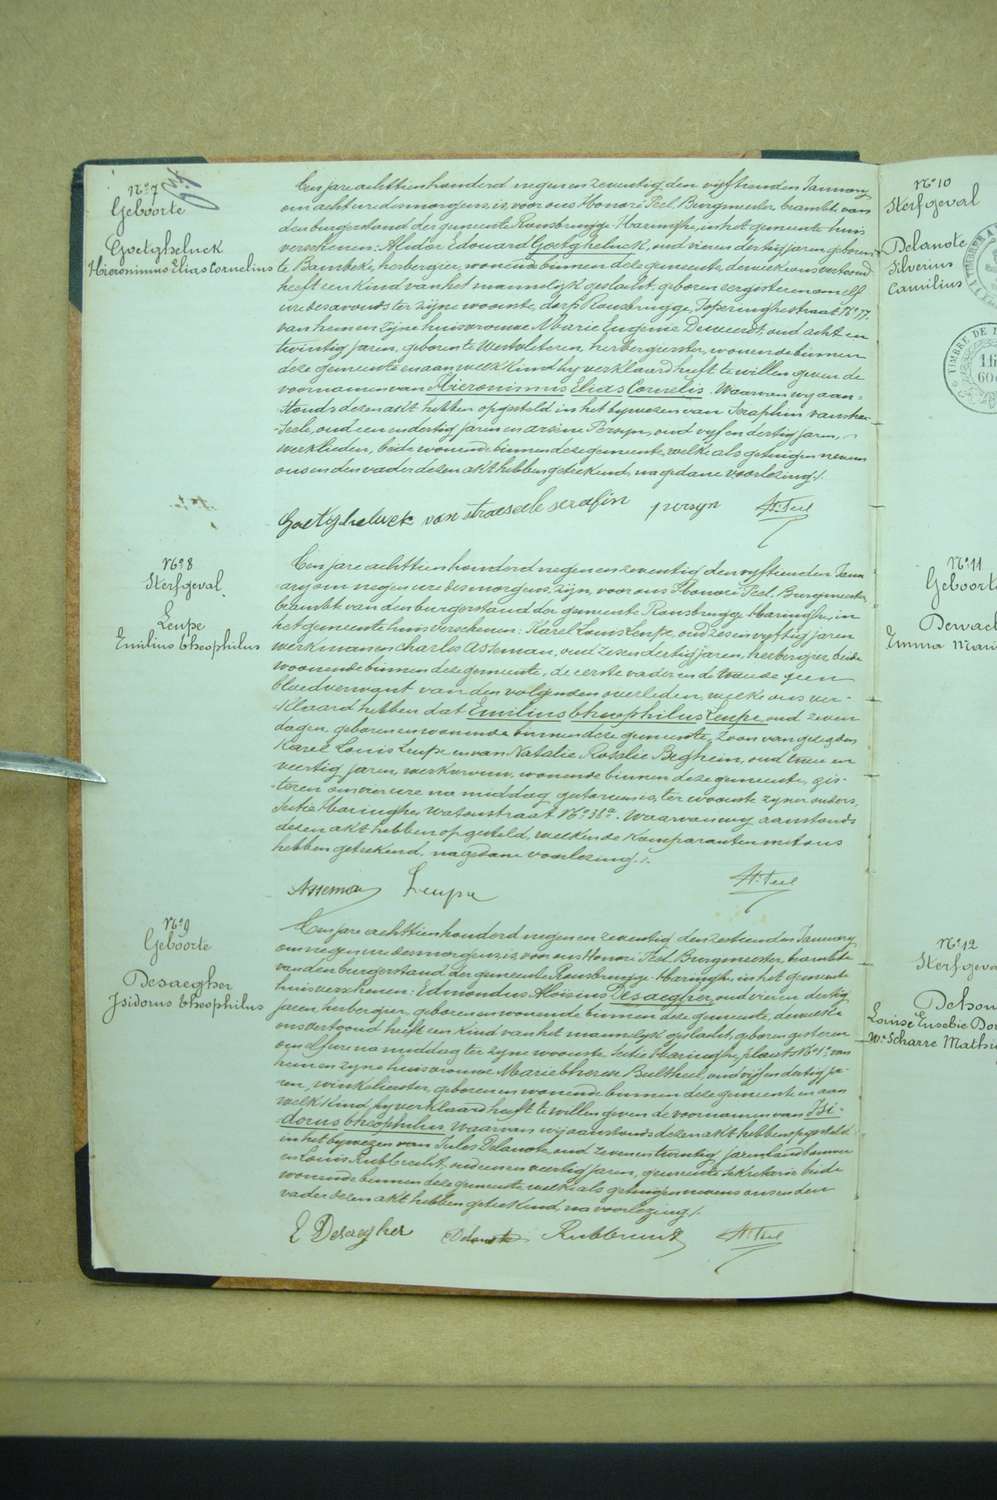 N° 7
Geboorte
Goetgheluck
Hieronimus Elias Cornelius
Een jare achttien honderd negen en zeventig den vyftienden January
om acht ure des morgens, is, voor ons Honoré Peel, Burgmeester, beambte van
den burgerstand der gemeente Rousbrugge-Haringhe, in het gemeente huis
verschenen: Alidor Edouard Goetgheluck, oud vier en dertig jaren, geboren
te Bambeke, herbergier, wonende binnen deze gemeente, dewelke ons vertoond
heeft een kind van het mannelyk geslacht, geboren eergisteren om elf
ure des avonds te zyne woonste, dorp Rousbrugge, Poperinghestraat N° 77
van hem en zyne huisvrouwe Marie Eugenie Deweerdt, oud acht en
twintig jaren, geboren te Westvleteren, herbergierster, wonende binnen
deze gemeente en aan welk kind hy verklaard heeft te willen geven de
voornamen van Hieronimus Elias Cornelis. Waarvan wy aan-
stonds dezen akt hebben opgesteld in het bywezen van Seraphin van strae-
-seele, oud een en dertig jaren en arsène Persyn, oud vyf en dertig jaren,
werklieden, beide wonende binnen deze gemeente, welke als getuigen nevens
ons en den vader dezen akt hebben geteekend, na gedane voorlezing /.
Goetgheluck van straeseele serafin persyn H. Peel
N° 8
Sterfgeval
Leupe
Emilius theophilus
Een jare achttien honderd negen en zeventig den vyftienden Janu-
ary om negen ure des morgens, zyn, voor ons Honoré Peel, Burgmeester
beambte van den burgerstand der gemeente Rousbrugge-Haringhe, in
het gemeente huis verschenen: Karel Louis Leupe, oud zes en vyftig jaren
werkman en Charles Asseman, oud zes en dertig jaren, herbergier, beide
woonende binnen deze gemeente, de eerste vader en de tweede geen
bloedverwant van den volgenden overleden, welke ons ver-
-klaard hebben dat Emilius theophilus Leupe oud zeven
dagen, geboren en wonende binnen deze gemeente, zoon van gezegden
Karel Louis Leupe en van Natalie Rosalie Beghein, oud twee en
veertig jaren, werkvrouw, wonende binnen deze gemeente, gis-
teren om vier ure na middag gestorven is, ter woonste zyner ouders,
Sectie Haringhe, Watoustraat N° 31a. Waarvan wy aanstonds
dezen akt hebben opgesteld, welken de komparanten met ons
hebben geteekend, na gedane voorlezing /.
Asseman Leupe H. Peel
N° 9
Geboorte
Desaegher
Isidorus theophilus
Een jare achttien honderd negen en zeventig den zestienden January
om negen ure des morgens, is, voor ons Honoré Peel, Burgmeester, beambte
van den burgerstand der gemeente Rousbrugge-Haringhe, in het gemeente
huis verschenen: Edmondus Aloïsius Desaegher, oud vier en dertig
jaren, herbergier, geboren en wonende binnen deze gemeente, dewelke
ons vertoond heeft een kind van het mannelyk geslacht, geboren gisteren
om elf ure na middag ter zyne woonste, Sectie Haringhe, plaats N° 1a, van
hem en zyne huisvrouwe Marie therese Bultheel, oud vyf en dertig ja-
ren, winkelierster, geboren en wonende binnen deze gemeente en aan
welk kind hy verklaard heeft te willen geven de voornamen van Isi-
dorus theophilus. Waarvan wy aanstonds dezen akt hebben opgesteld
in het bywezen van Jules Delanote, oud zeven en twintig jaren, landbouwer
en Louis Rubbrecht, oud een en veertig jaren, gemeente Sekretaris, beide
wonende binnen deze gemeente welke als getuigen nevens ons en den
vader dezen akt hebben geteekend, na voorlezing /.
E Desaegher Delanote Rubbrecht H. Peel
N° 10
Sterfgeval
Delanote
Silverius
Camilius
TIMBRE DE
N° 11
Geboorte
Emma
N° 12
Sterfgeval
Louise Eusebie
We Scharre